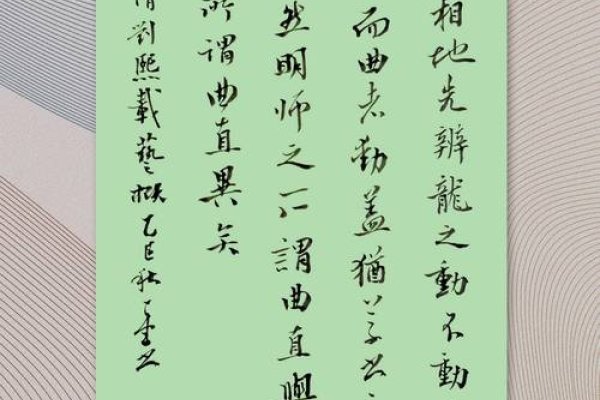 相地先辨龍之動不動
而曲者動蓋猶草书
然明师之所謂曲直與
所謂曲直異矣
清劉熙載藝概乙巳秋书